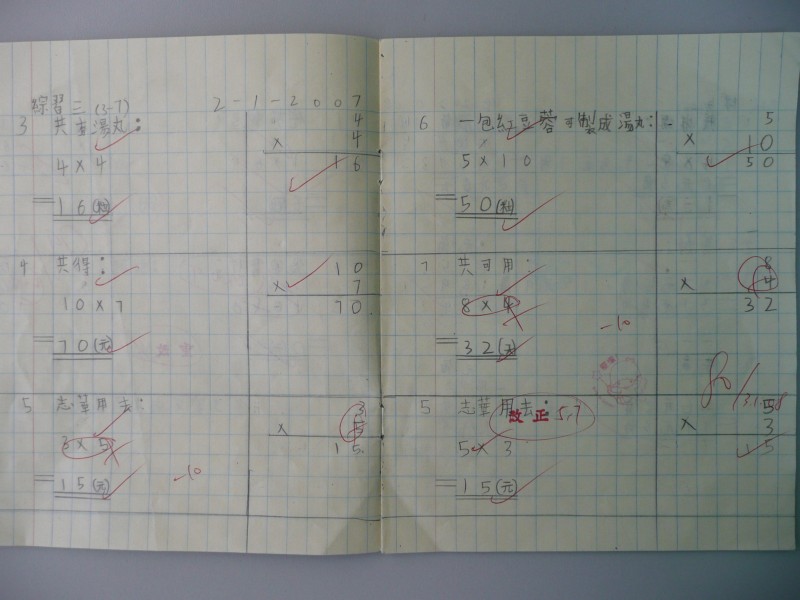 綜習三 (3-7) 2-1-2007
3 共有湯丸： 4
4 × 4 × 4
16
= 16(粒)
4 共得： 10
10 × 7 × 7
70
= 70(元)
5 志華用去： 3
3 × 5 × 5
15
= 15(元)
-10
6 一包紅豆蓉可製成湯丸： 5
5 × 10 × 10
50
= 50(粒)
7 共可用： 8
8 × 4 × 4
32
= 32(天)
-10
80
5 志華用去： 5
改正 5,7
5 × 3 × 3
15
= 15(元)